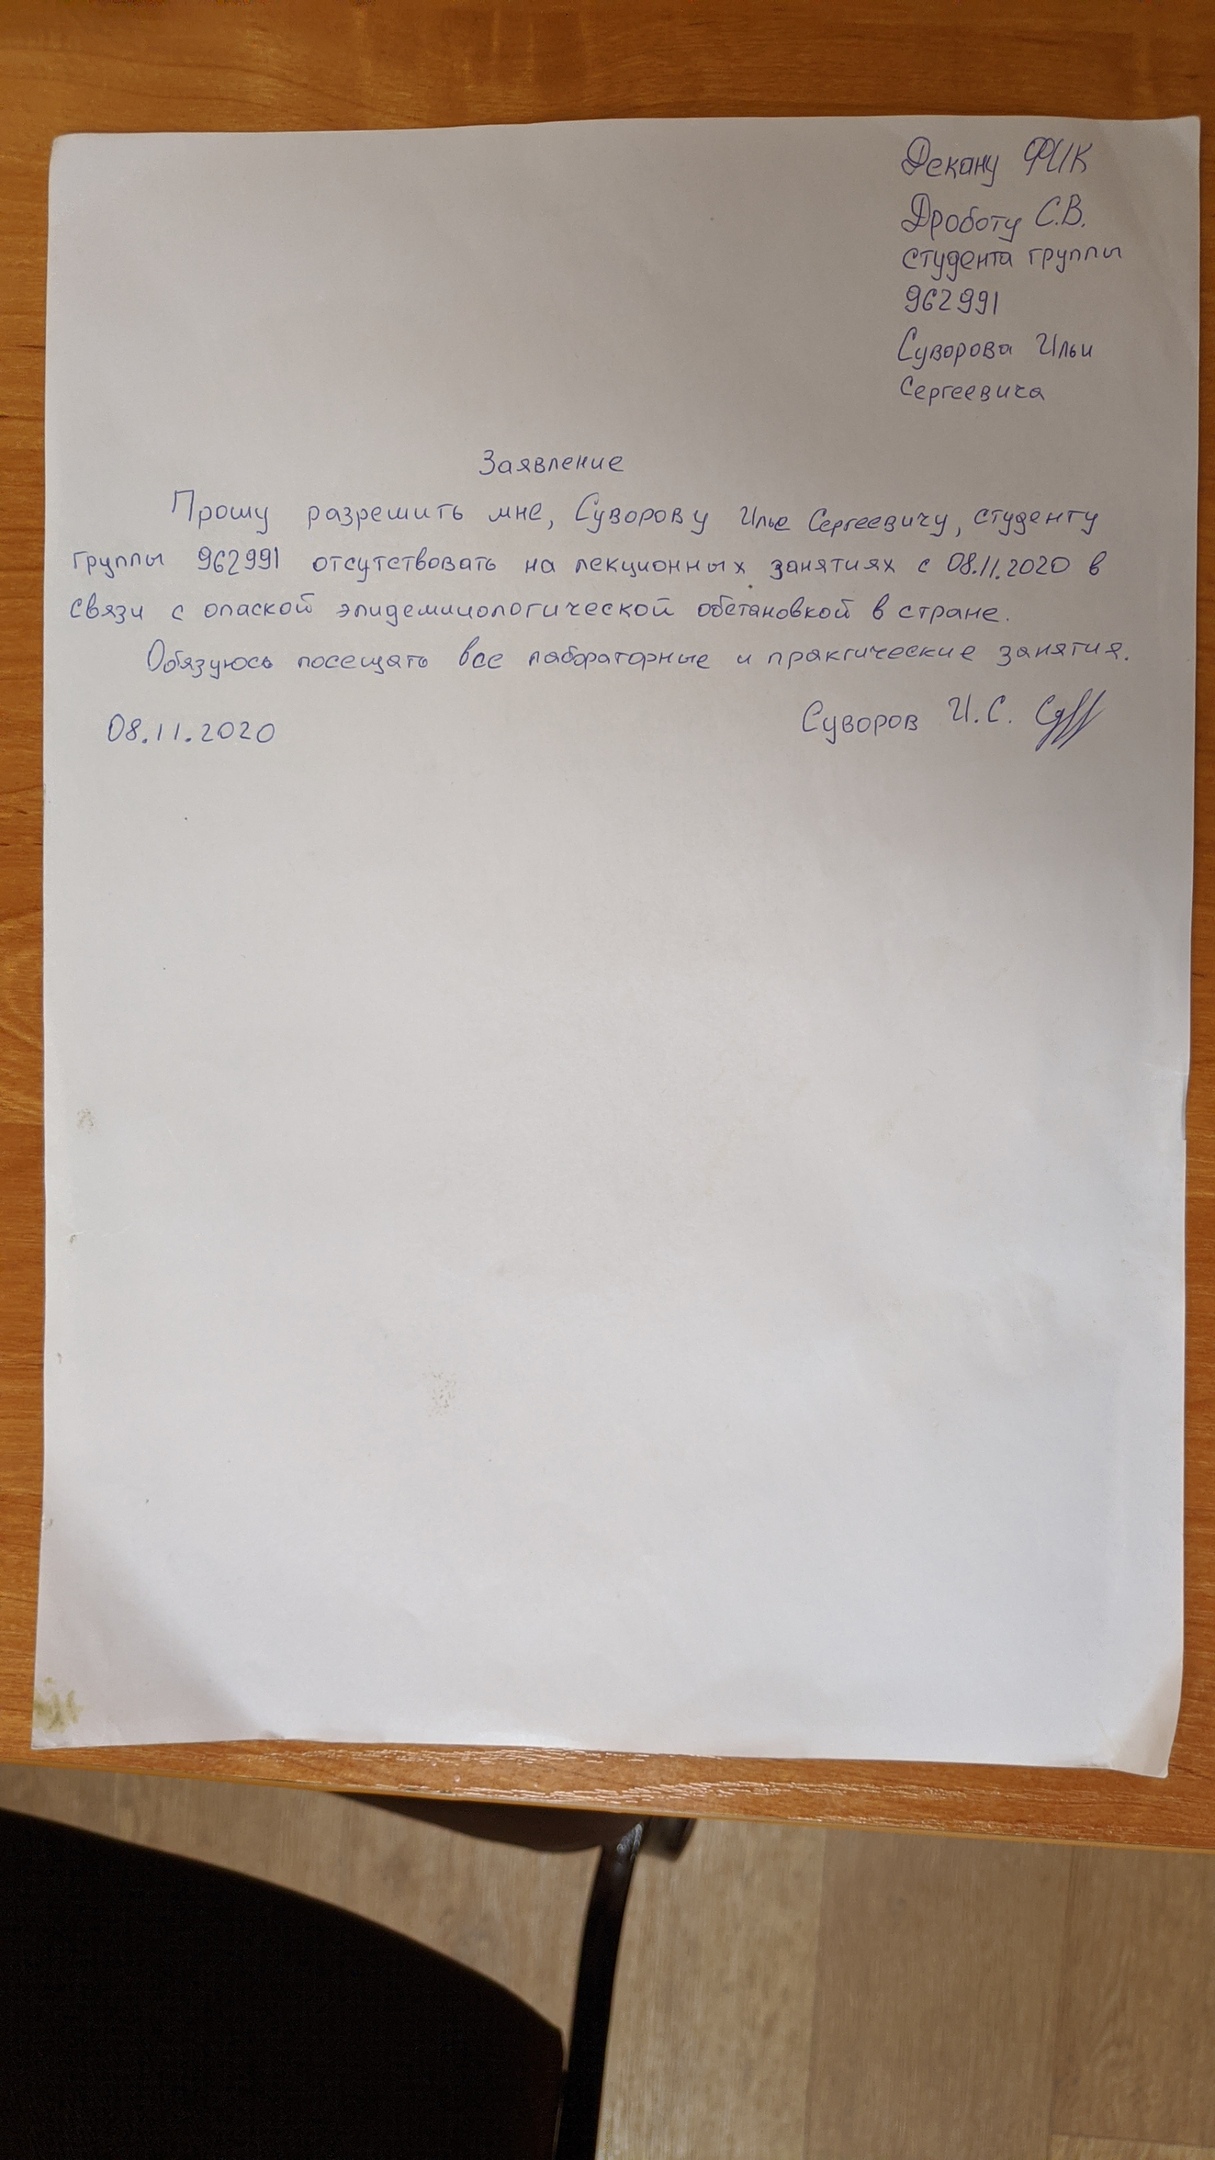 Декану ФИК
Дроботу С.В.
студента группы
962991
Суворова Ильи
Сергеевича
Заявление
Прошу разрешить мне, Суворову Илье Сергеевичу, студенту
группы 962991 отсутствовать на лекционных занятиях с 08.11.2020 в
связи с опаской эпидемиологической обстановкой в стране.
Обязуюсь посещать все лабораторные и практические занятия.
08.11.2020 Суворов И.С.